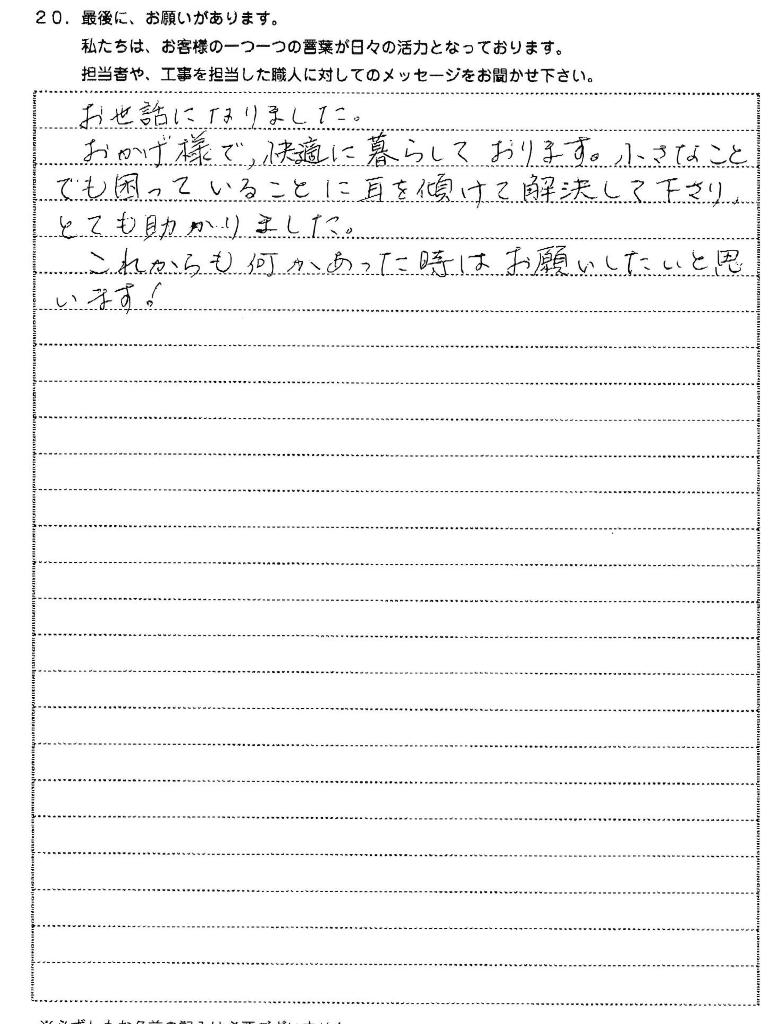 20. 最後に、お願いがあります。
私たちは、お客様の一つ一つの言葉が日々の活力となっております。
担当者や、工事を担当した職人に対してのメッセージをお聞かせ下さい。
お世話になりました。
おかげ様で、快適に暮らしております。小さなこと
でも困っていることに耳を傾けて解決して下さり、
とても助かりました。
これからも何かあった時はお願いしたいと思
います!